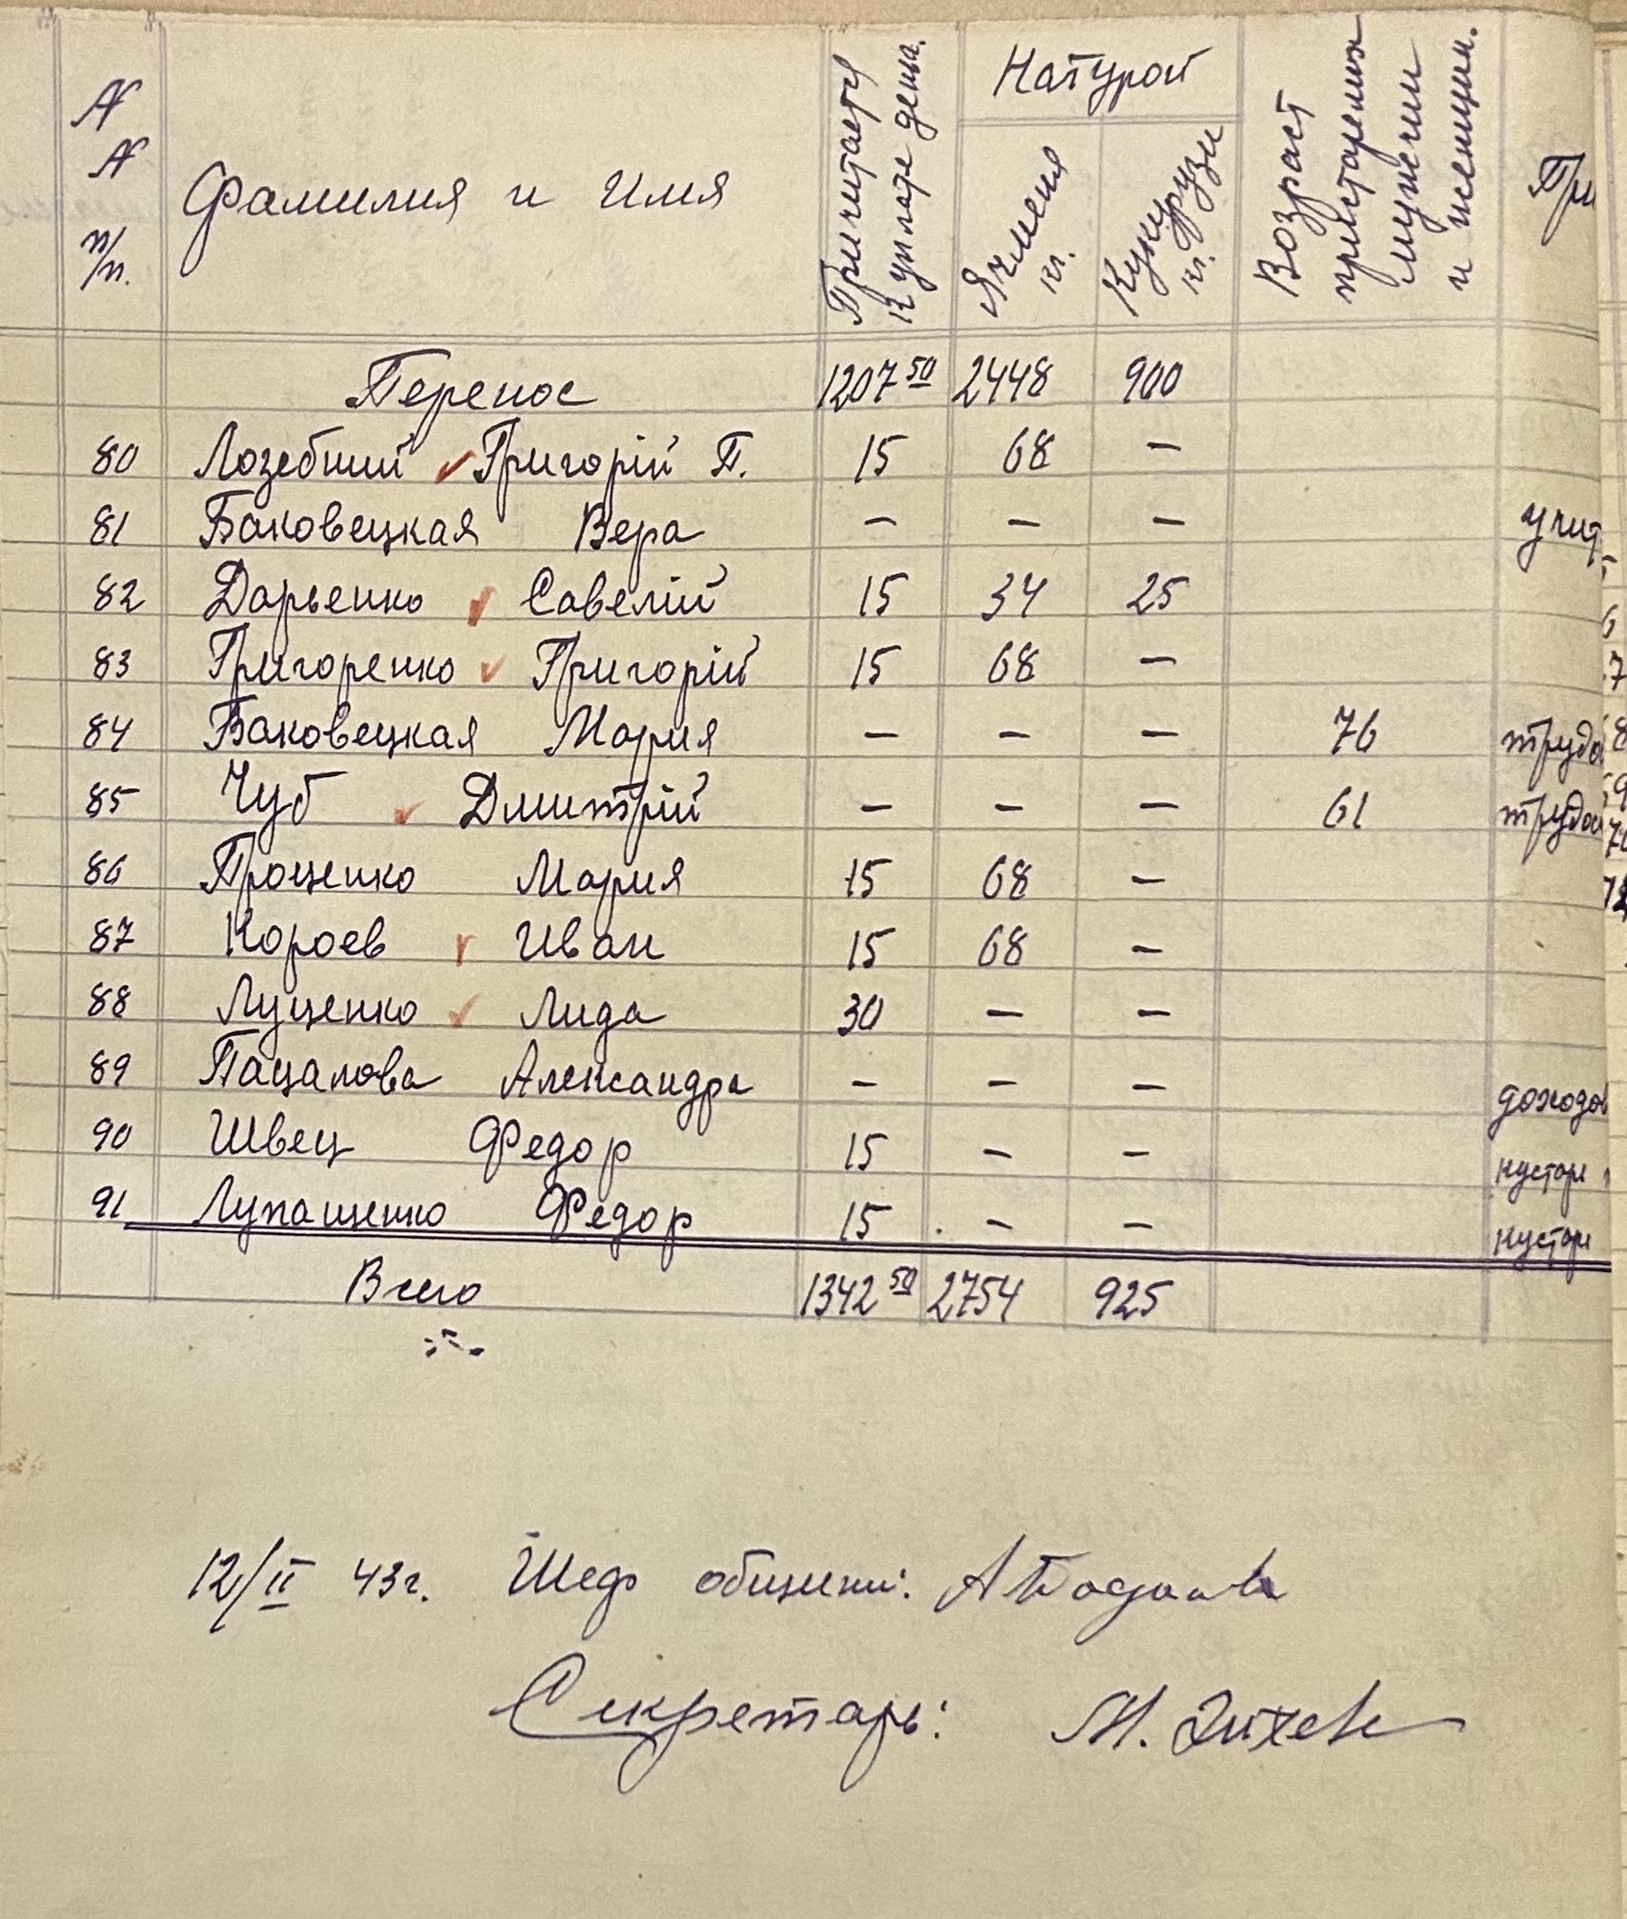 № № п/п. Фамилия и Имя Причитается к уплате деньг. Натурой Ячменя кг. Кукурузи кг. Возраст пристарелих мужчин и женщин. При
Перенос 1207 50 2448 900
80 Лозебний Григорій П. 15 68 —
81 Баковецкая Вера — — — учит
82 Дарьенко Савелій 15 34 25
83 Григоренко Григорій 15 68 —
84 Баковецкая Мария — — — 76 трудо
85 Чуб Дмитрій — — — 61 трудо
86 Проценко Мария 15 68 —
87 Короев Иван 15 68 —
88 Луценко Лида 30 — —
89 Пацалова Александра — — — доходов
90 Швец Федор 15 — — кустар
91 Лупащенко Федор 15 — — кустар
Всего 1342 50 2754 925
12/II 43г. Шеф общини:
Секретарь: М.